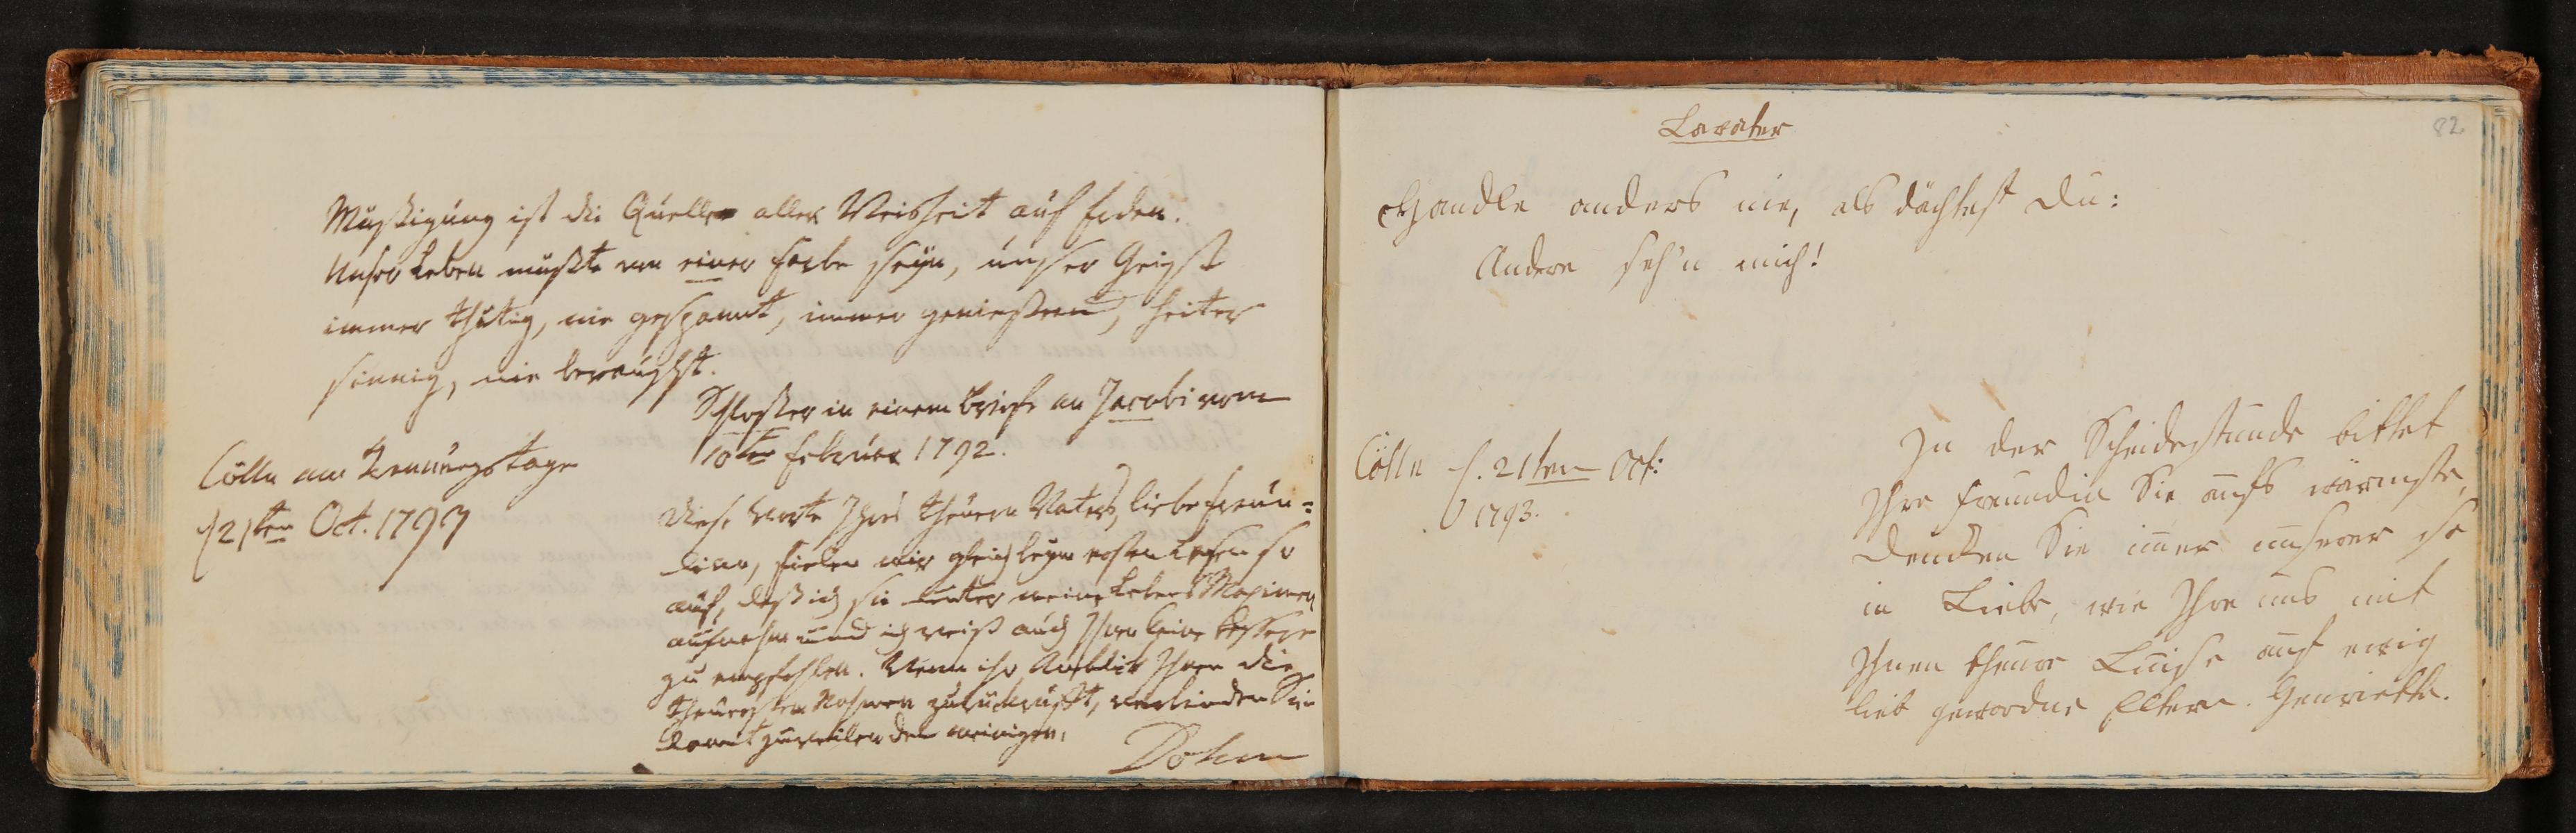 Mäßigung ist die Quelle aller Weisheit auf Erden.
Unser Leben müßte von einer Farbe seyn, unser Geist
immer thätig, nie gespannt, immer genießend, heiter
sinnig, nie berauscht.
Schlosser in einem Briefe an Jacobi vom
10ten Februar 1792.
Cölln am Trennungstage
d 21ten Oct. 1793
Diese Worte Ihres theuern Vaters, liebe Freun=
dinn, fielen mir gleich beym ersten Lesen so
auf, daß ich sie unter meine Lebens Maximen
aufnahm und ich weiß auch Ihnen keine bessere
zu empfehlen. Wenn ihr Anblick Ihnen die
theuersten Nahmen zurückruft, verbinden Sie
damit zuweilen den meinigen.
Dohm
82
Lavater
Handle anders nie, als dächtest du:
Andere seh'n mich!
Cölln d. 21ten Oct:
1793.
In der Scheidestunde bittet
Ihre Freundin Sie aufs wärmste,
dencken Sie imer unserer so
in Liebe, wie Ihre uns mit
Ihnen theure Luise auf ewig
lieb gewordne Eltern. Henriette.